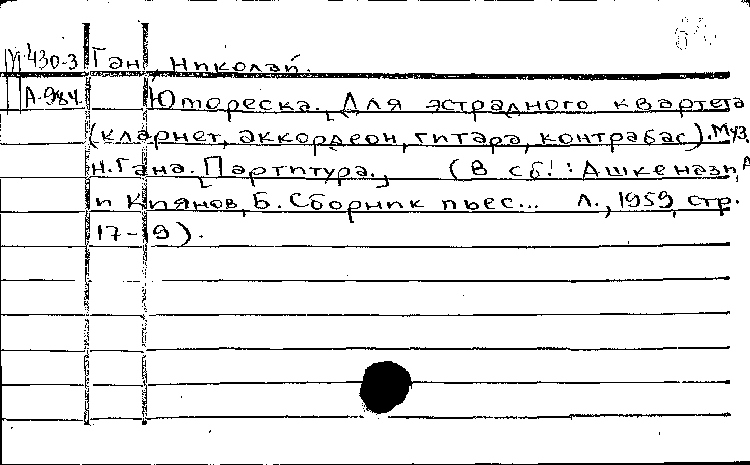 М 430-3 Ган, Николай.
А-984 Юмореска. [Для эстрадного квартета
(кларнет, аккордеон, гитара, контрабас). Муз.
Н. Гана. [Партитура.] (В сб.: Ашкенази, А
и Киянов, Б. Сборник пьес... Л., 1959, стр.
17-19).